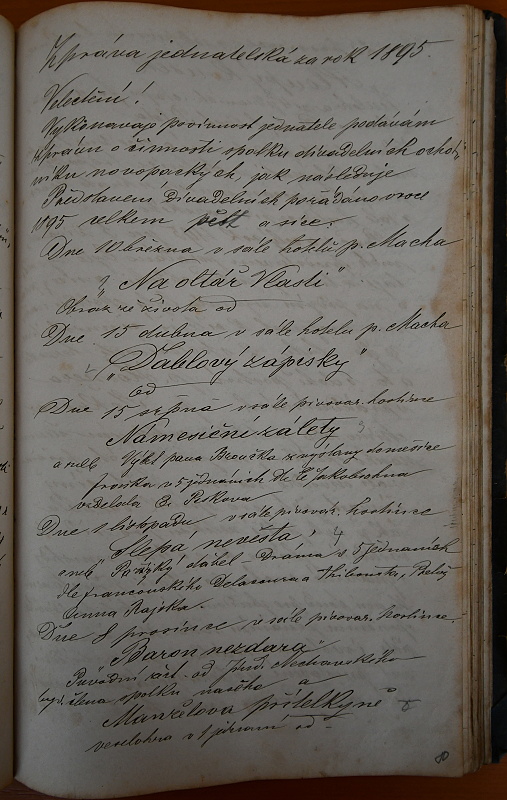 Zpráva jednatelská za rok 1895.
Velectění!
Vykonávaje povinnost jednatele podávám
zprávu o činnosti spolku divadelních ochot-
níků novopackých, jak následuje
Představení divadelních pořádáno v roce
1895 celkem pět a sice:
Dne 10 března v sále hotelu p. Macha
„Na oltář Vlasti"
Obraz ze života od
Dne 15 dubna v sále hotelu p. Macha
„Ďáblovy zápisky"
od
Dne 15 srpna v sále pivovar. hostince
Náměsíční zálety 3
aneb Výlet pana Broučka z výstavy do měsíce
fraška v 5 jednáních dle
vzdělala B.
Dne 1 listopadu v sále pivovar. hostince
„Slepá nevěsta" 4
aneb ďábel – Drama v 5 jednáních
dle francouzského a
Anna Rajská.
Dne 8 prosince v sále pivovar. hostince.
„Baron nezdara"
Původní od Jind.
člena spolku našeho a
Manželova přítelkyně"
veselohra v 1 jednání od –